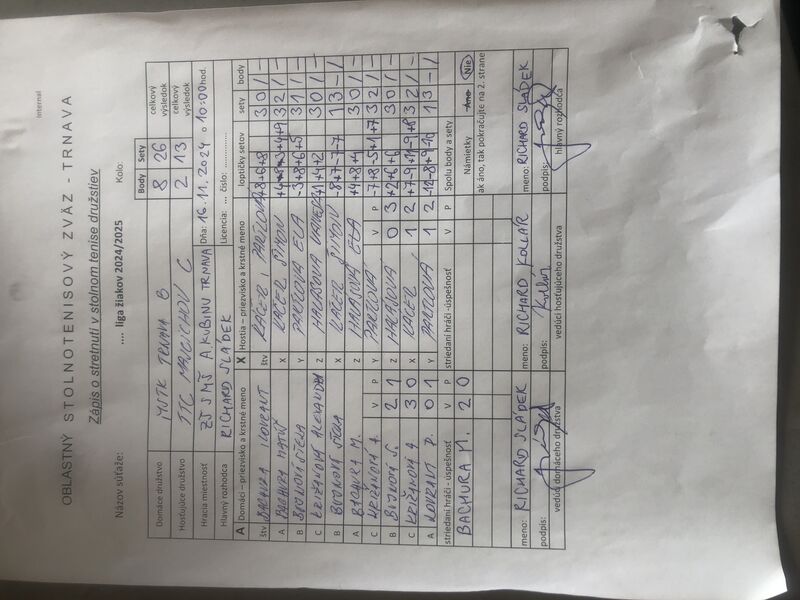 Internal
OBLASTNÝ STOLNOTENISOVÝ ZVÄZ - TRNAVA
Zápis o stretnutí v stolnom tenise družstiev
Názov súťaže: .... liga žiakov 2024/2025 Kolo:
Body Sety
Domáce družstvo MSTK TRNAVA B 8 26 celkový výsledok
Hosťujúce družstvo TTC MAJCICHOV C 2 13 celkový výsledok
Hracia miestnosť ZŠ S MŠ A KUBINU TRNAVA Dňa: 16.11.2024 o 10:00 hod.
Hlavný rozhodca RICHARD SLÁDEK Licencia: ... číslo: ...............
A Domáci – priezvisko a krstné meno X Hostia – priezvisko a krstné meno loptičky setov sety body
štv BACHURA KOVRANT štv KAČER PARÍLOVÁ +8+6+8 3 0 1 –
A BACHURA MATÚŠ X KAČER ŠIMON 3 2 1 –
B BOJNOVÁ STELA Y PARÍLOVÁ ELA -3+8+6+5 3 1 1 –
C KRIŽANOVÁ ALEXANDRA Z HALÁSOVÁ +4+4+2 3 0 1 –
B BOJNOVÁ STELA X KAČER ŠIMON -8+7-7-7 1 3 – 1
A BACHURA M. Z HALÁSOVÁ ELA +4+8+4 3 0 1 –
C KRIŽANOVÁ A. V P Y PARÍLOVÁ V P -7+8-5+1+7 3 2 1 –
B BOJNOVÁ S. 2 1 Z HALÁSOVÁ 0 3 +2+6+6 3 0 1 –
C KRIŽANOVÁ A 3 0 X KAČER 1 2 3 2 1 –
A KOVRANT P. 0 1 Y PARÍLOVÁ 1 2 1 3 – 1
striedaní hráči -úspešnosť V P striedaní hráči -úspešnosť V P Spolu body a sety
BACHURA M. 2 0 Námietky Áno Nie
ak áno, tak pokračujte na 2. strane
meno: RICHARD SLÁDEK meno: RICHARD KOLLÁR meno: RICHARD SLÁDEK
podpis: podpis: Kollár podpis:
vedúci domáceho družstva vedúci hosťujúceho družstva hlavný rozhodca